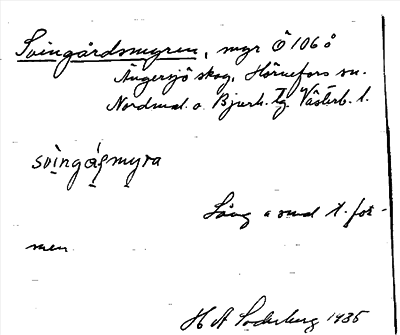 Svingårdsmyren, myr Ö 106 å
Ängersjö skog, Hörnefors sn.
Nordmal. o. Bjurh. tg. Västerb. l.
svìngágmyra
Lång o smal t. for-
men.
H A Söderberg 1935